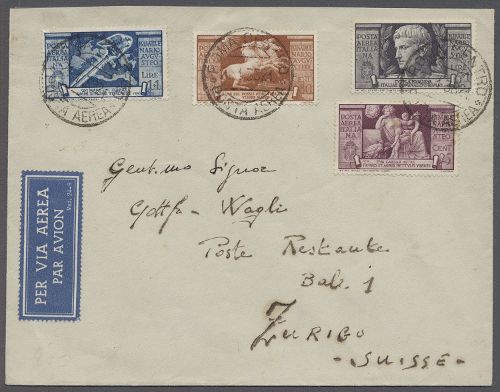 POSTA AEREA ITALIANA
BIMILLENARIO AUGUSTEO
LIRE 1+1
POSTA AEREA ITALIANA
BIMILLENARIO AUGUSTEO
POSTA AEREA ITALIANA
BIMILLENARIO AUGUSTEO
POSTA AEREA ITALIANA
BIMILLENARIO AUGUSTEO
CENT 25
ROMA
POSTA AEREA
PER VIA AEREA
PAR AVION
Gent.mo Signor
Gottfr. Wagli
Poste Restante
Bah. 1
ZURIGO
- SUISSE -